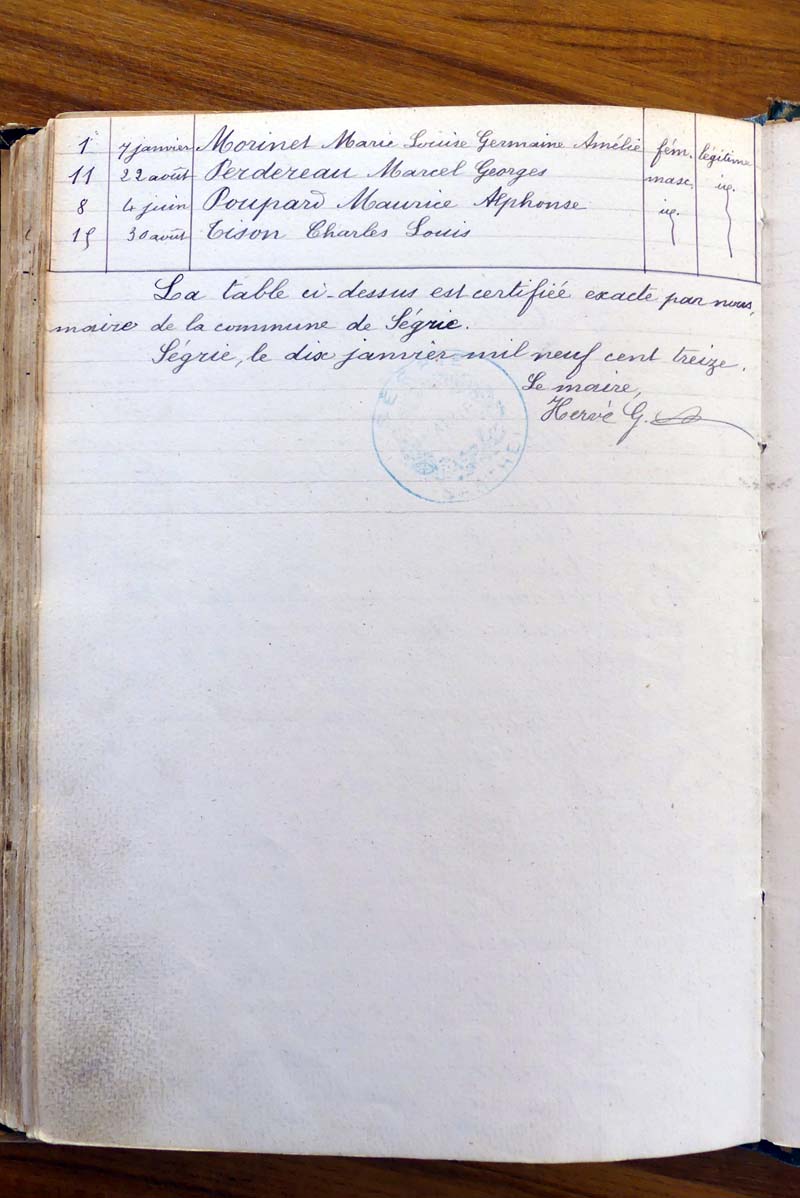 1 7 janvier Morinet Marie Louise Germaine Amélie fém. légitime
11 22 août Perdereau Marcel Georges masc. id.
8 4 juin Poupard Maurice Alphonse id.
30 août Tison Charles Louis
La table ci-dessus est certifiée exacte par nous,
maire de la commune de Ségrie.
Ségrie, le dix janvier mil neuf cent treize.
Le maire,
Hervé G.